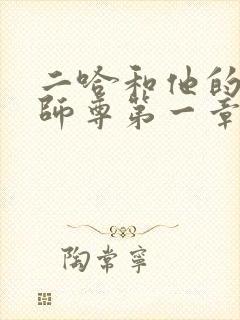 二哈和他的
師尊第一章
陶常寧